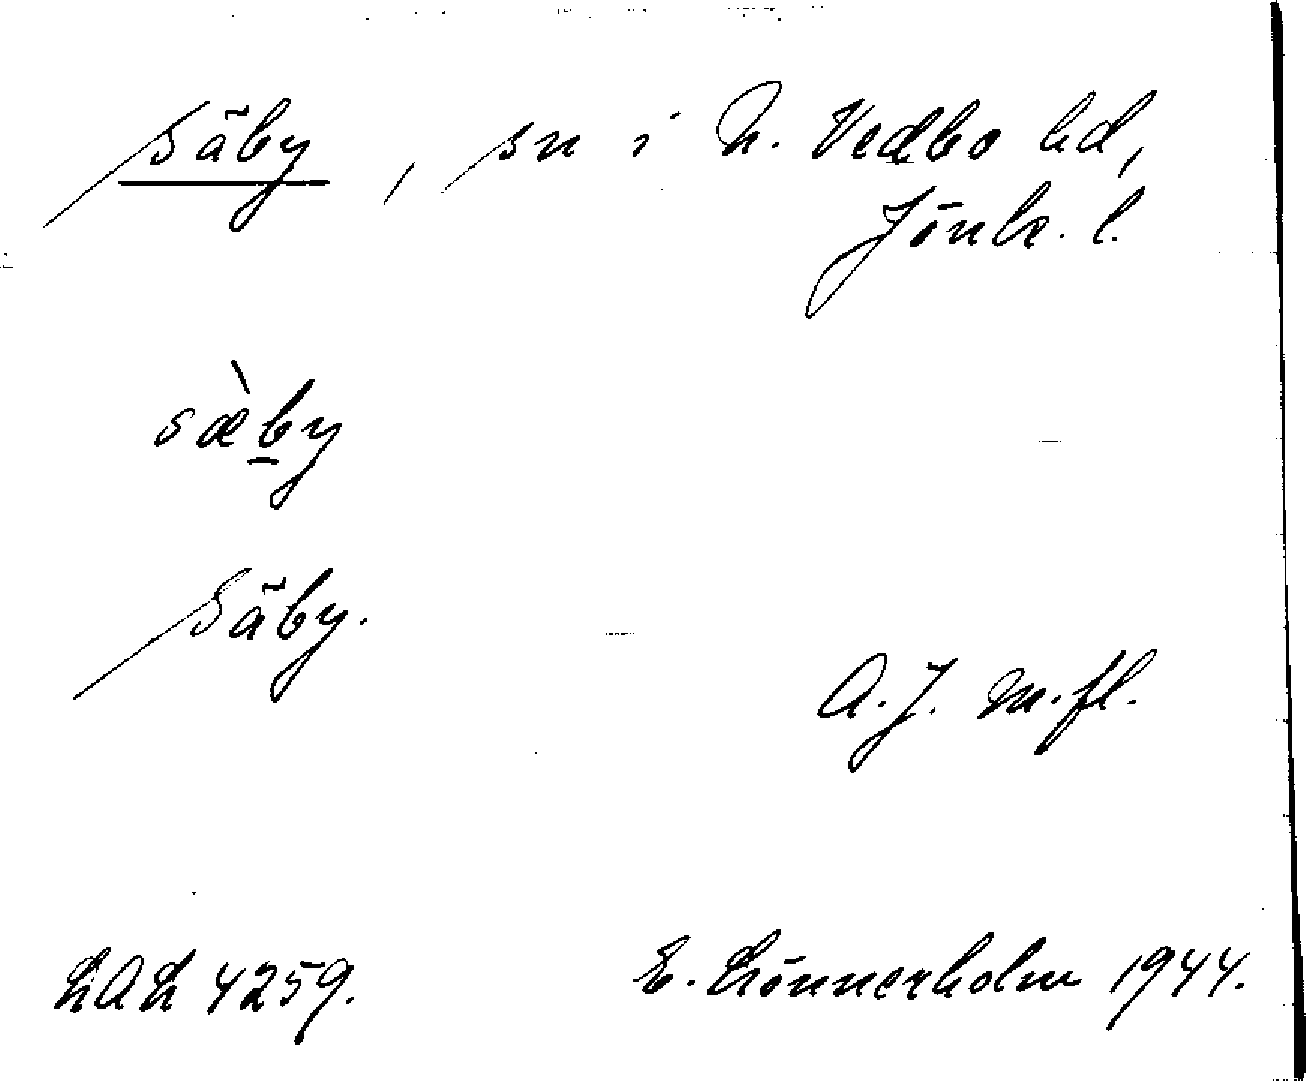 Säby, sn i N. Vedbo hd,
Jönk. l.
sæ̀by
Säby.
A.J. m.fl.
LAL 4259. E. Lönnerholm 1944.